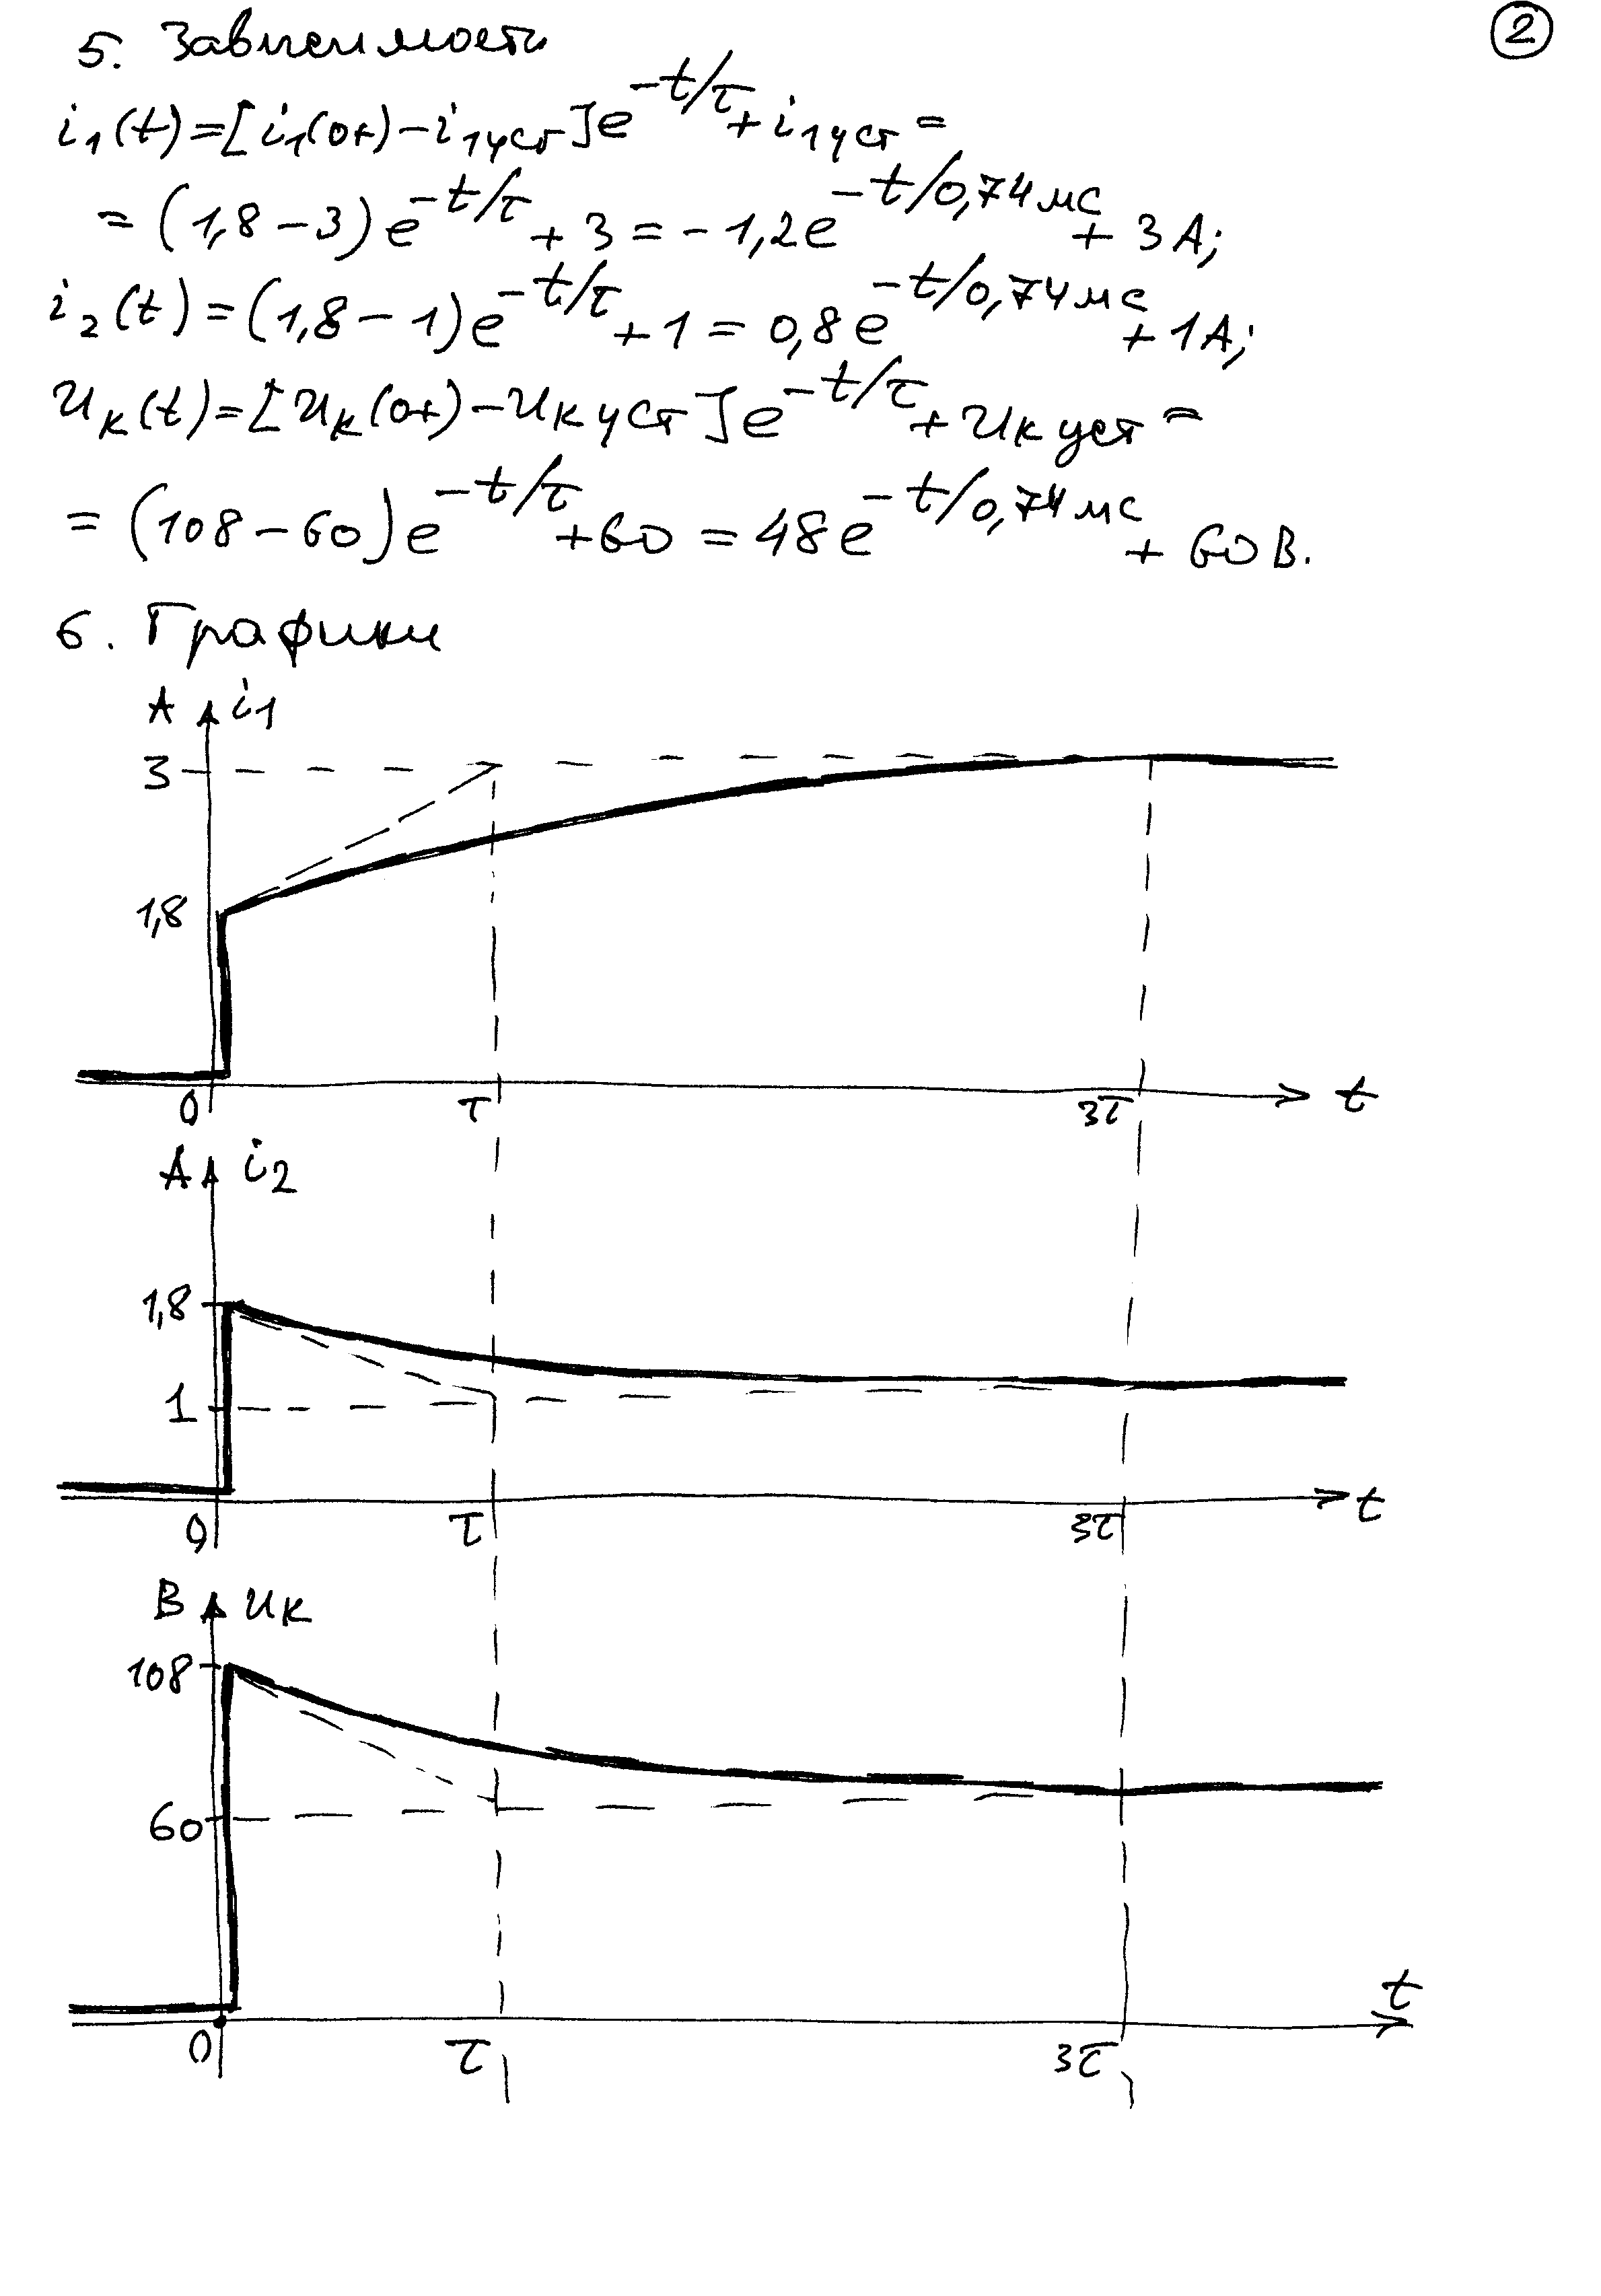 2
5. Зависимости
i₁(t)=[i₁(0+)-i₁уст]e^(-t/τ)+i₁уст=
=(1,8-3)e^(-t/τ)+3=-1,2e^(-t/0,74мс)+3А;
i₂(t)=(1,8-1)e^(-t/τ)+1=0,8e^(-t/0,74мс)+1А;
uк(t)=[uк(0+)-uк уст]e^(-t/τ)+uк уст=
=(108-60)e^(-t/τ)+60=48e^(-t/0,74мс)+60В.
6. Графики
А i₁
3
1,8
0 τ 3τ t
А i₂
1,8
1
0 τ 3τ t
В uк
108
60
t
0 τ 3τ